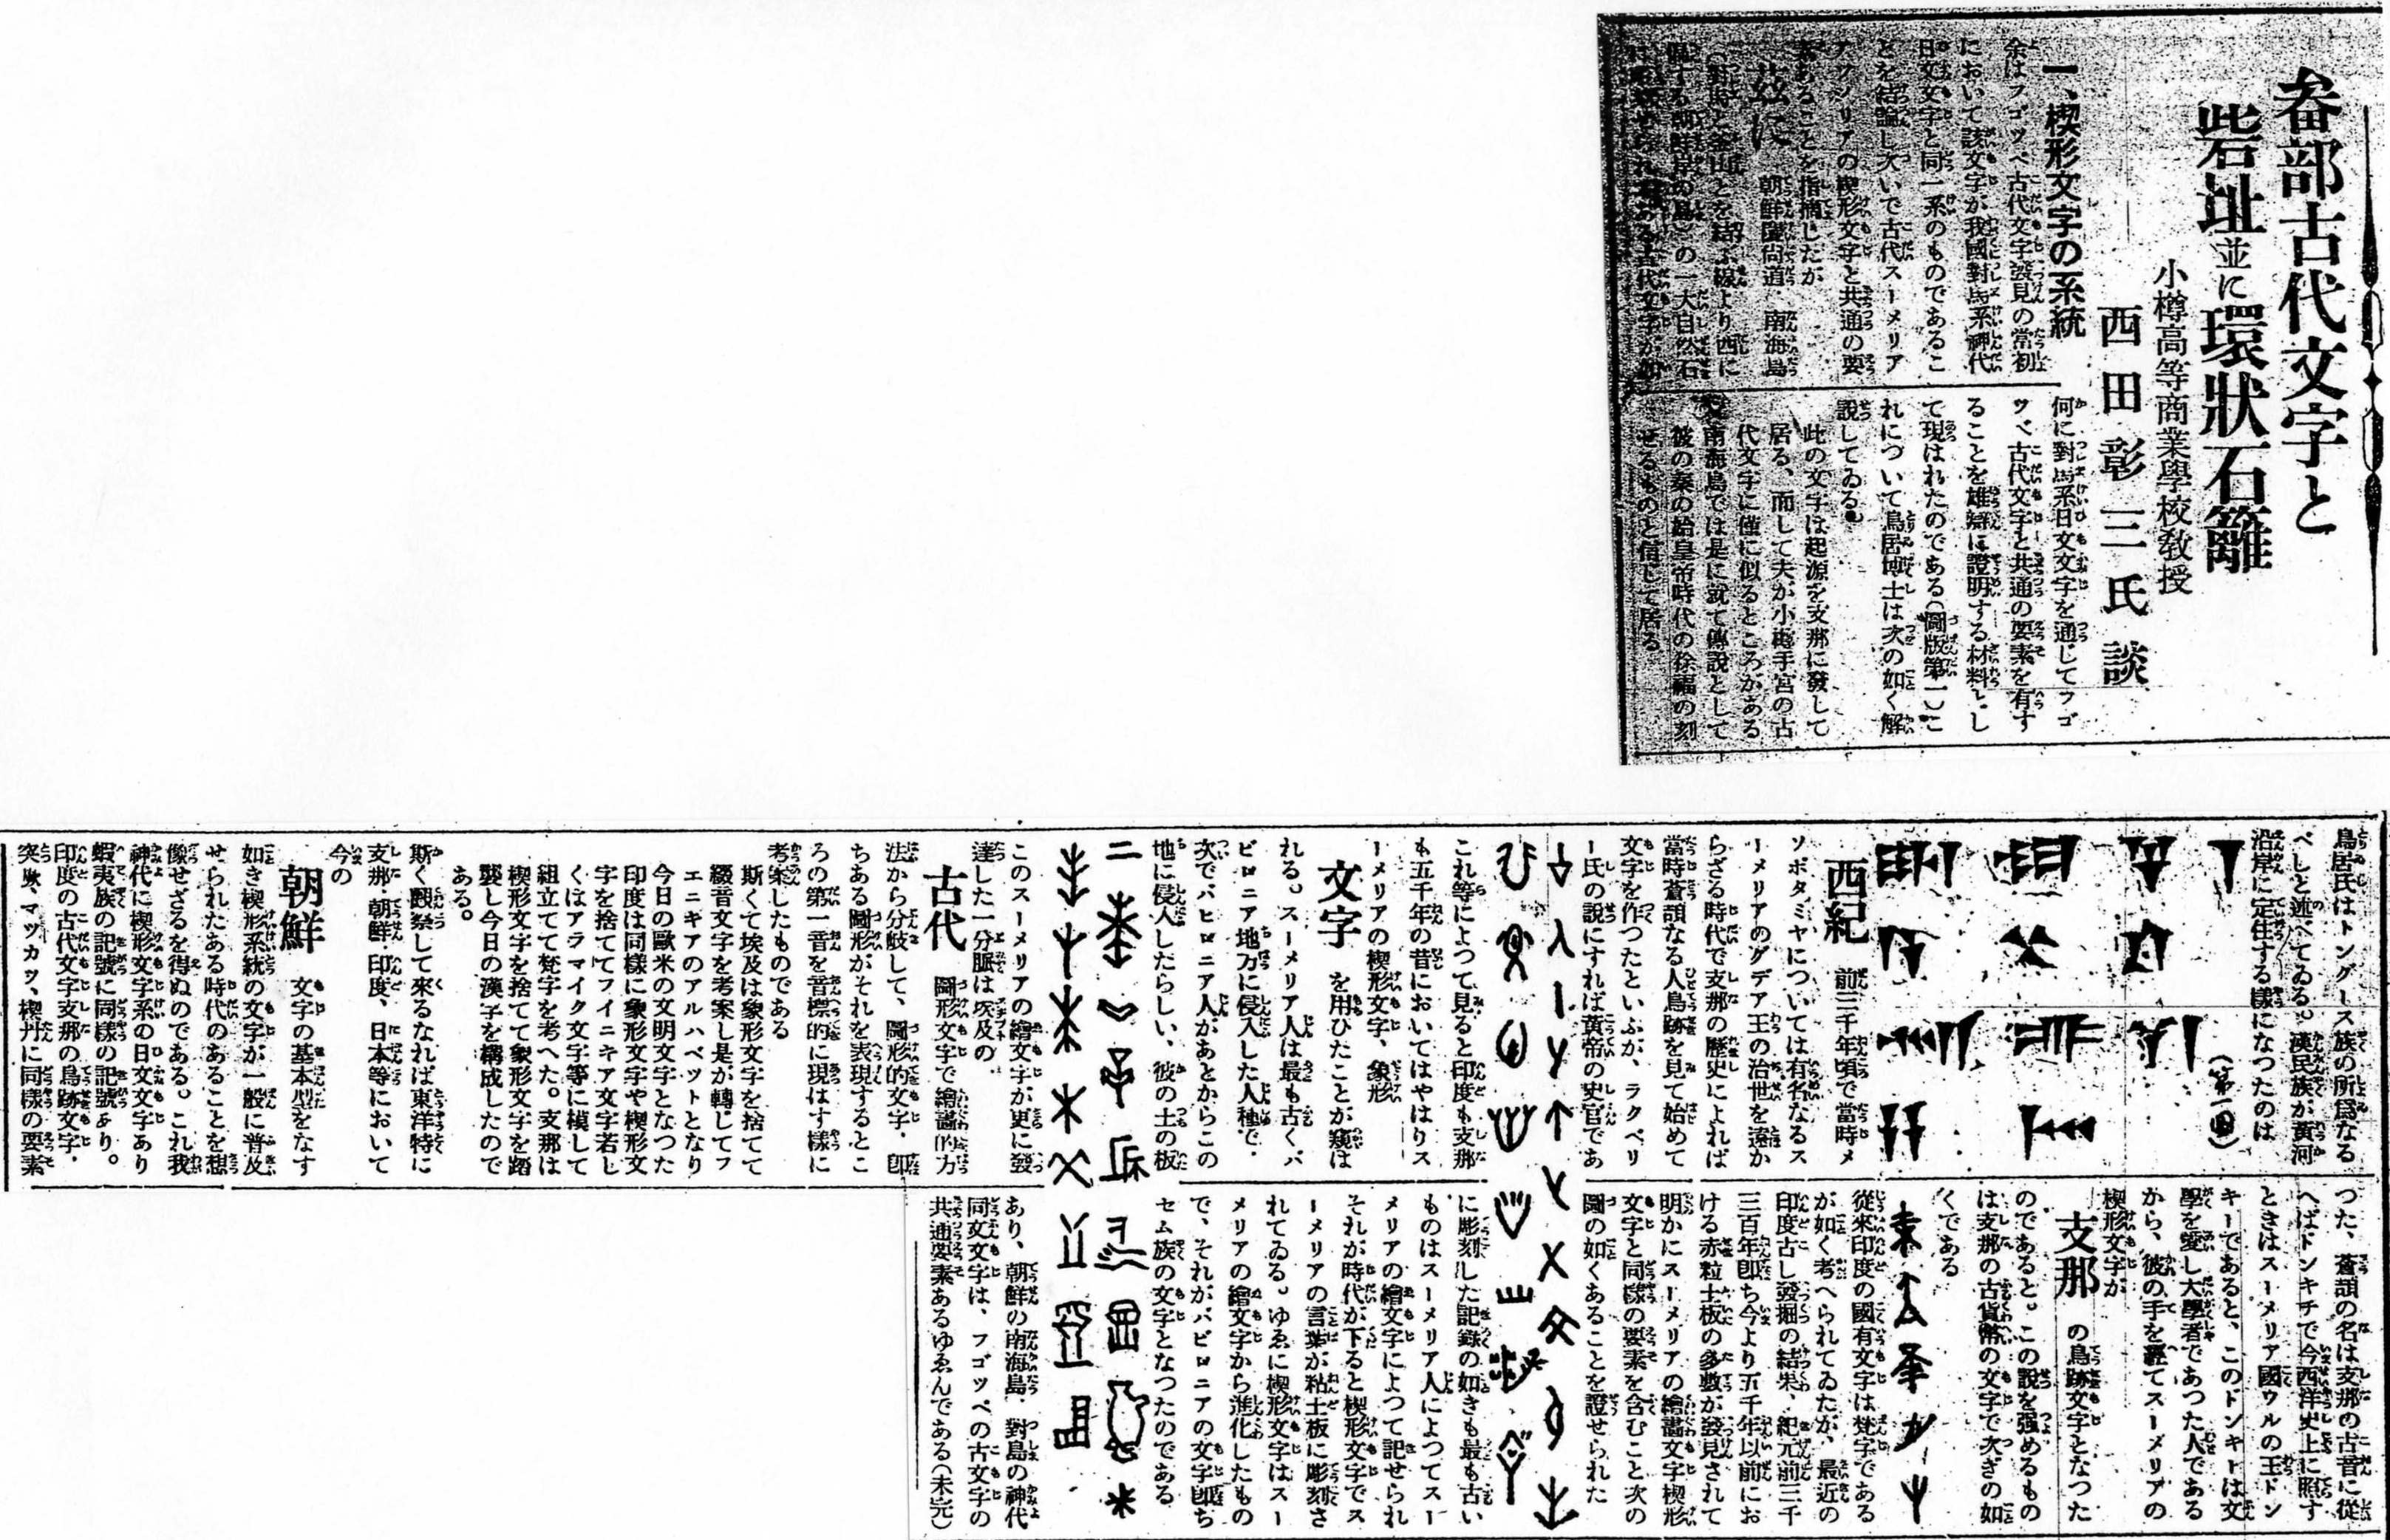 畚部古代文字と
砦址並に環狀石籬
小樽高等商業學校教授
西田彰三氏談
一、楔形文字の系統
余はフゴッペ古代文字發見の當初
において該文字が我國對馬系神代
日文文字と同一系のものであるこ
とを結論し次いで古代スーメリア
アッシリアの楔形文字と共通の要
素あることを指摘したが
茲に 朝鮮慶尚道 南海島
(對馬と釜山とを結ぶ線より西に
偏する朝鮮岸の島)の一大自然石
に
ある古代文字が如
何に對馬系日文文字を通じてフゴ
ッペ古代文字と共通の要素を有す
ることを雄辯に證明する材料とし
て現はれたのである(圖版第一)こ
れについて鳥居博士は次の如く解
説してゐる。
此の文字は起源を支那に發して
居る、而して夫が小樽手宮の古
代文字に僅に似るところがある
又南海島では是に就て傳説として
彼の秦の始皇帝時代の徐福の刻
せるものと信じて居る
鳥居氏はトングース族の所爲なる
べしと述べてゐる。漢民族が黄河
沿岸に定住する樣になつたのは
(第一圖)
西紀 前三千年頃で當時メ
ソポタミヤについては有名なるス
ーメリアのグデア王の治世を遠か
らざる時代で支那の歴史によれば
當時蒼頡なる人鳥跡を見て始めて
文字を作つたといふが、ラクペリ
ー氏の説にすれば黄帝の史官であ
つた、蒼頡の名は支那の古音に從
へばドンキチで今西洋史上に照す
ときはスーメリア國ウルの王ドン
キーであると、このドンキーは文
學を愛し大學者であつた人である
から、彼の手を經てスーメリアの
楔形文字が
支那 の鳥跡文字となつた
のであると。この説を强めるもの
は支那の古貨幣の文字で次ぎの如
くである
從來印度の國有文字は梵字である
が如く考へられてゐたが、最近の
印度古し發掘の結果、紀元前三千
三百年卽ち今より五千年以前にお
ける赤粒土板の多數が發見されて
明かにスーメリアの繪畫文字楔形
文字と同樣の要素を含むこと次の
圖の如くあることを證せられた
これ等によつて見ると印度も支那
も五千年の昔においてはやはりス
ーメリアの楔形文字、象形
文字 を用ひたことが窺は
れる。スーメリア人は最も古くバ
ビロニア地方に侵入した人種で、
次でバビロニア人があとからこの
地に侵入したらしい、彼の土の板
に彫刻した記錄の如きも最も古い
ものはスーメリア人によつてスー
メリアの繪文字によつて記せられ
それが時代が下ると楔形文字でス
ーメリアの言葉が粘土板に彫刻さ
れてゐる。ゆゑに楔形文字はスー
メリアの繪文字から進化したもの
で、それがバビロニアの文字卽ち
セム族の文字となつたのである
このスーメリアの繪文字が更に發
達した一分脈は埃及の
古代 圖形文字で繪畵的方
法から分岐して、圖形的文字、卽
ちある圖形がそれを表現するとこ
ろの第一音を音標的に現はす樣に
考案したものである
斯くて埃及は象形文字を捨てて
綴音文字を考案し是が轉じてフ
エニキアのアルハベットとなり
今日の歐米の文明文字となつた
印度は同樣に象形文字や楔形文
字を捨ててフイニキア文字若し
くはアラマイク文字等に模して
組立てて梵字を考へた。支那は
楔形文字を捨てて象形文字を踏
襲し今日の漢字を構成したので
ある。
斯く觀察して來るなれば東洋特に
支那、朝鮮、印度、日本等において
今の
朝鮮 文字の基本型をなす
如き楔形系統の文字が一般に普及
せられたある時代のあることを想
像せざるを得ぬのである。これ我
神代に楔形文字系の日文文字あり
蝦夷族の記號に同樣の記號あり。
印度の古代文字支那の鳥跡文字、
突厥、マッカツ、楔丹に同樣の要素
あり、朝鮮の南海島、對島の神代
同文文字は、フゴッペの古文字の
共通要素あるゆゑんである(未完)